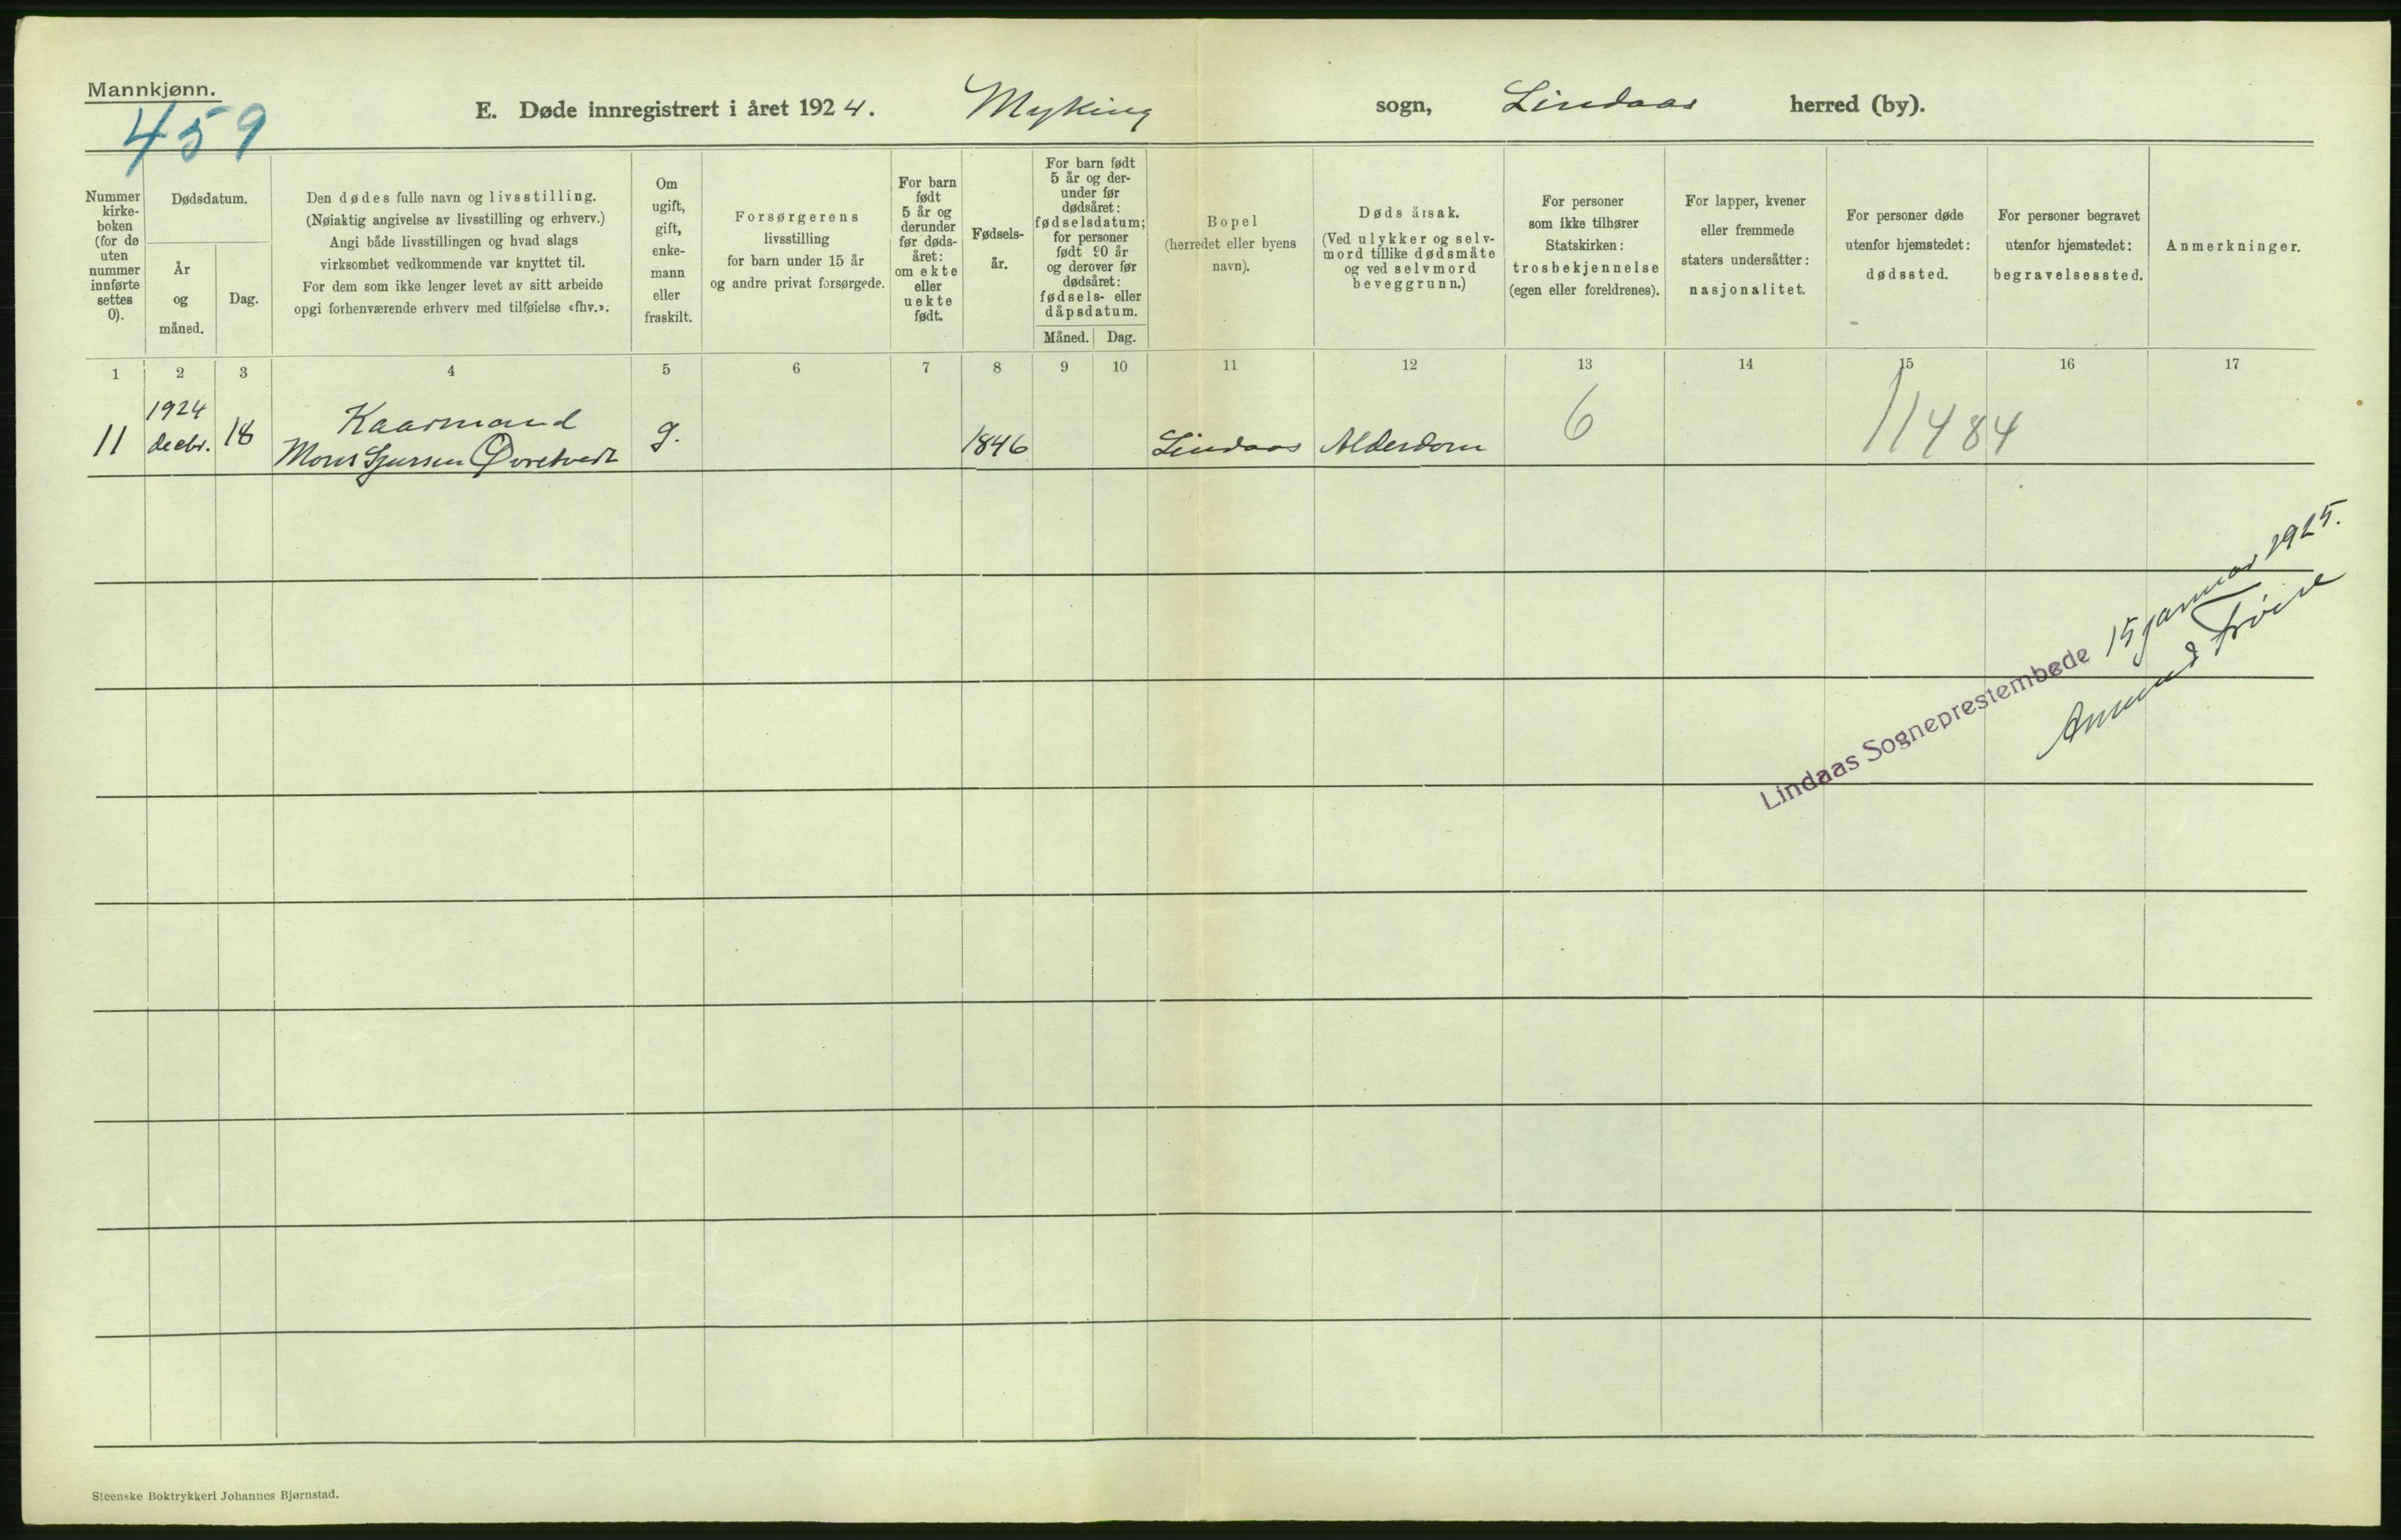 Mannkjønn.
459
E. Døde innregistrert i året 1924. Myking sogn, Lindaas herred (by).
Nummer
kirke-
boken
(for de
uten
nummer
innførte
settes
0).
Dødsdatum.
År
og
måned.
Dag.
Den dødes fulle navn og livsstilling.
(Nøiaktig angivelse av livsstilling og erhverv.)
Angi både livsstillingen og hvad slags
virksomhet vedkommende var knyttet til.
For dem som ikke lenger levet av sitt arbeide
opgi forhenværende erhverv med tilføielse «fhv.».
Om
ugift,
gift,
enke-
mann
eller
fraskilt.
Forsørgerens
livsstilling
for barn under 15 år
og andre privat forsørgede.
For barn
født
5 år og
derunder
før døds-
året:
om ekte
eller
uekte
født.
Fødsels-
år.
For barn født
5 år og der-
under før
dødsåret:
fødselsdatum;
for personer
født 90 år
og derover før
dødsåret:
fødsels- eller
dåpsdatum.
Måned. Dag.
Bopel
(herredet eller byens
navn).
Dødsårsak.
(Ved ulykker og selv-
mord tillike dødsmåte
og ved selvmord
beveggrunn.)
For personer
som ikke tilhører
Statskirken:
trosbekjennelse
(egen eller foreldrenes).
For lapper, kvener
eller fremmede
staters undersåtter:
nasjonalitet.
For personer døde
utenfor hjemstedet:
dødssted.
For personer begravet
utenfor hjemstedet:
begravelsessted.
Anmerkninger.
1 2 3 4 5 6 7 8 9 10 11 12 13 14 15 16 17
1924 Kaarmand 6
11 decbr. 18 Mons Sjursen Øvretvedt g. 1846 Lindaas Alderdom 11484
Lindaas Sogneprestembede 15 januar 1925.
Amund
Steenske Boktrykkeri Johannes Bjørnstad.